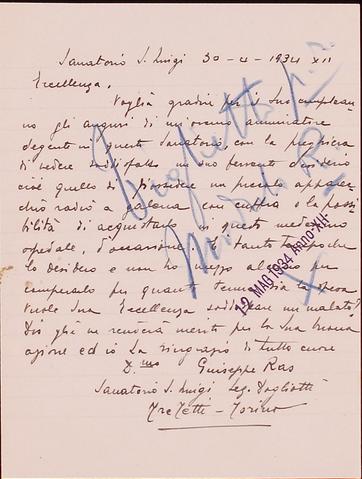 Sanatorio S. Luigi 30-4-1934 XII
Eccellenza,
Voglia gradire per il Suo complean
no gli auguri di un oscuro ammiratore
degente in questo Sanatorio, con la preghiera
di vedere soddisfatto un suo fervente desiderio
cioè quello di possedere un piccolo apparec
chio radio a galena con cuffia e la possi
bilità di acquistarlo in questo medesimo
ospedale, d'occasione. È tanto tempo che
lo desidero e non ho mezzo alcuno per
comperarlo per quanto tenue sia la spesa
Vuole Sua Eccellenza soddisfare un malato,
Dio glie ne renderà merito per la Sua buona
azione ed io La ringrazio di tutto cuore
D.mo Guiseppe Ras
Sanatorio S. Luigi Seg. Dogliotti
Tre Tetti - Torino
12 MAG 1934 ANNO XII